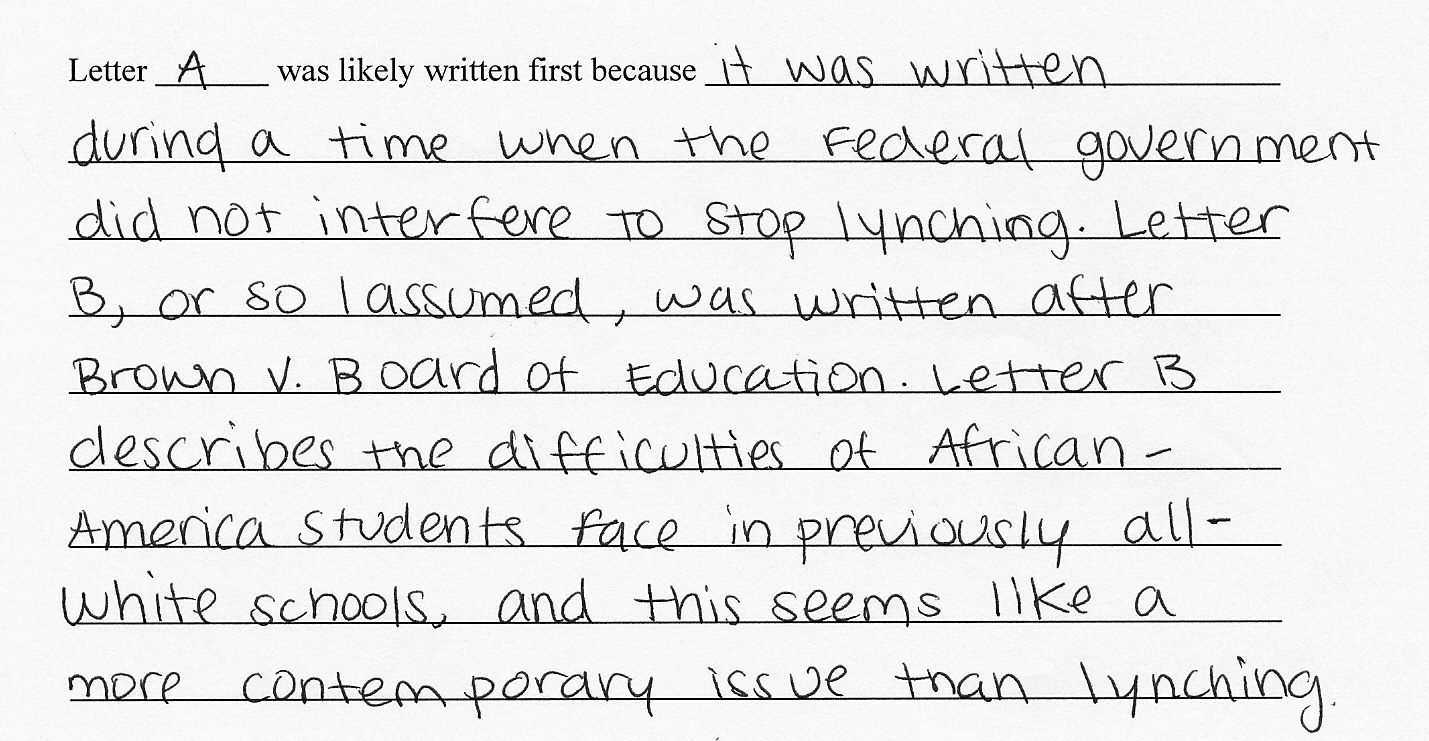 Letter A was likely written first because it was written
during a time when the Federal government
did not interfere to stop lynching. Letter
B, or so I assumed, was written after
Brown v. Board of Education. Letter B
describes the difficulties of African-
America students face in previously all-
white schools, and this seems like a
more contemporary issue than lynching.